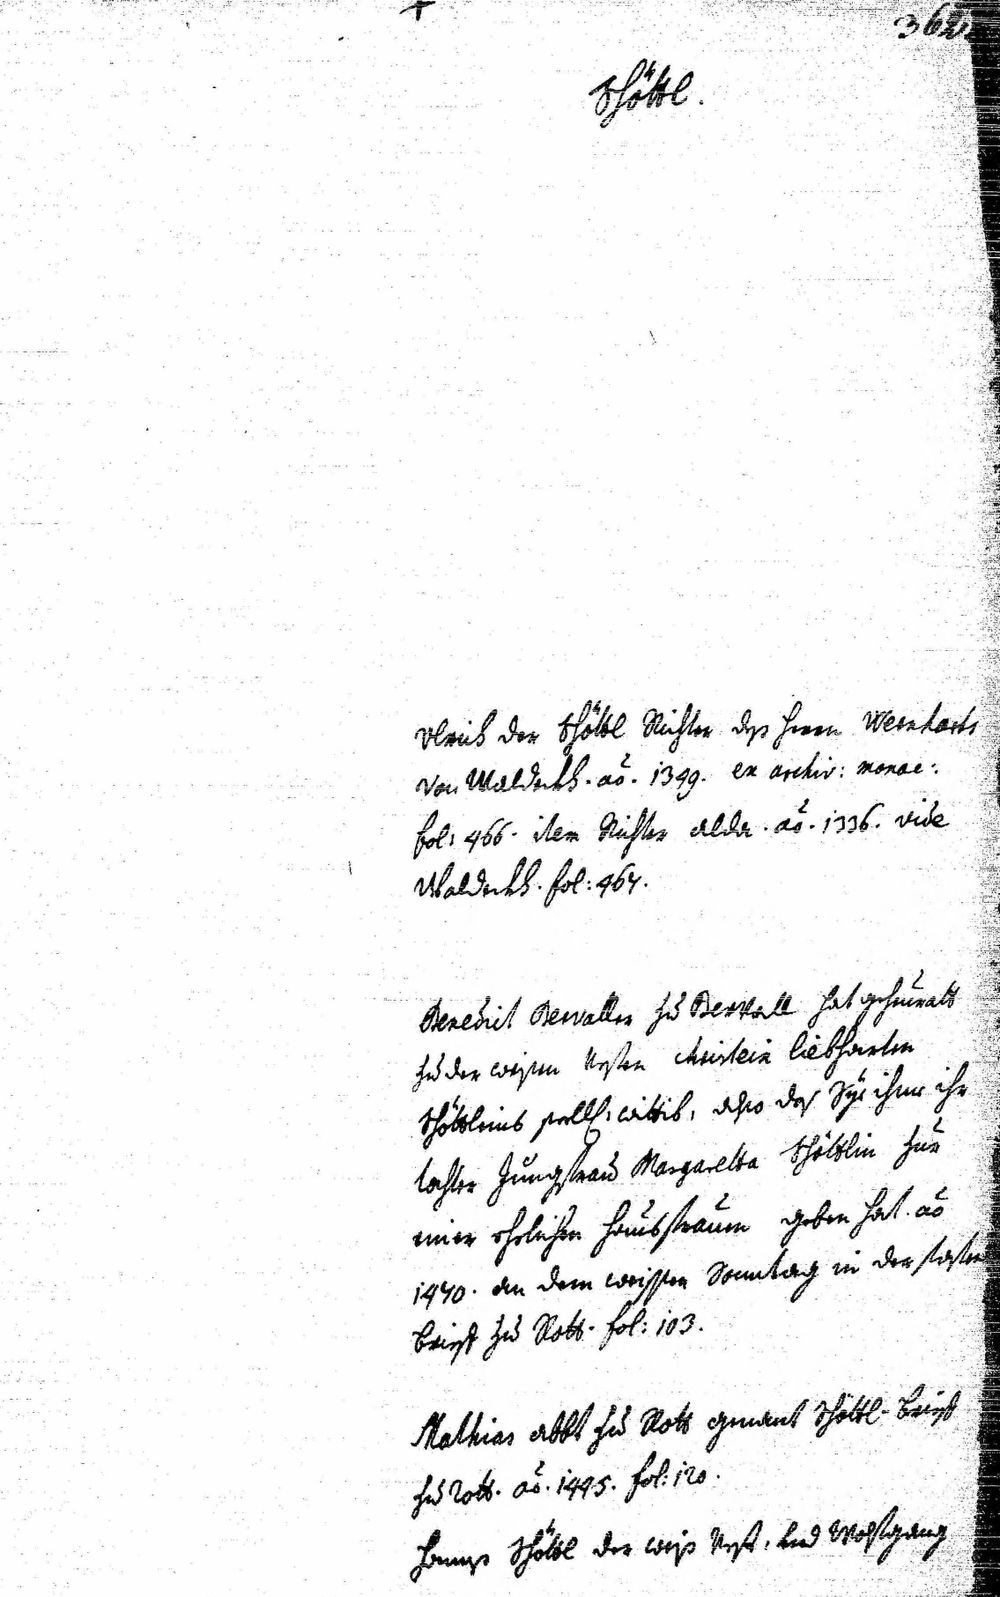 362
Schöttl.
Ulrich der Schöttl Richter deß Herrn Wernharts
von Waldeckh. aō. 1349. ex archiv: monac:.
fol: 466. item Richter alda. aō. 1336. vide
Waldeckh. fol: 467.
Benedict Berwaller zu Berwall hat geheurath
zu der weisen Vesten Christein Liebharten
Schöttleins seell: wittib, also das Sye ihme ihr
tochter Jungfrau Margaretta Schöttlin zur
einer ehrlichen haußfrauen geben hat. aō
1470. an dem weissen Sonntag in der fasten
brieff zu Rott. fol: 103.
Mathias abbt zu Rott genant Schöttl. brieff
zu rott. aō. 1495. fol: 120.
Hannß Schöttl der weiß Vest, und Wolfgang